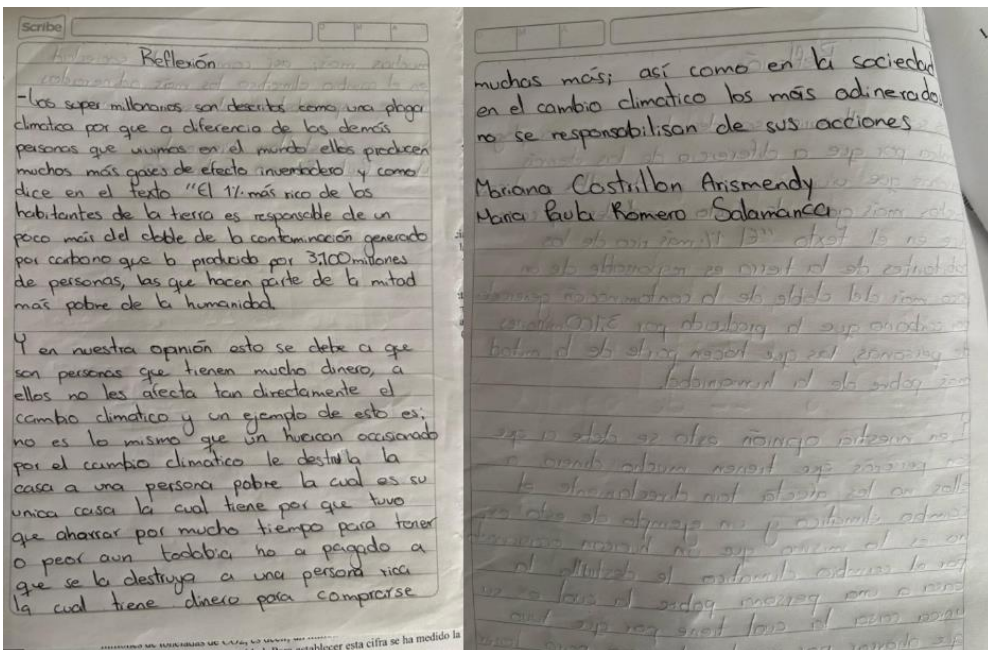 Scribe
Reflexión
-Los super millonarios son descritos como una plaga
climatica por que a diferencia de los demás
personas que vivimos en el mundo ellos producen
muchos más gases de efecto invernadero y como
dice en el texto "El 1% más rico de los
habitantes de la terra es responsable de un
poco más del doble de la contaminación generado
por carbono que lo producido por 3.100 millones
de personas, las que hacen parte de la mitad
más pobre de la humanidad.
Y en nuestra opinión esto se debe a que
son personas que tienen mucho dinero, a
ellos no les afecta tan directamente el
cambio climatico y un ejemplo de esto es;
no es lo mismo que un huracan occasionado
por el cambio climatico le destruya la
casa a una persona pobre la cual es su
unica casa la cual tiene por que tuvo
que ahorrar por mucho tiempo para tener
o peor aun todabia no a pagado a
que se la destruya a una persona rica
la cual tiene dinero para comprarse
esta cifra se ha medido la
muchas más; así como en la sociedad
en el cambio climatico los más adinerado
no se responsabilisan de sus acciones
Mariana Castrillon Arismendy
Maria Paula Romero Salamanca